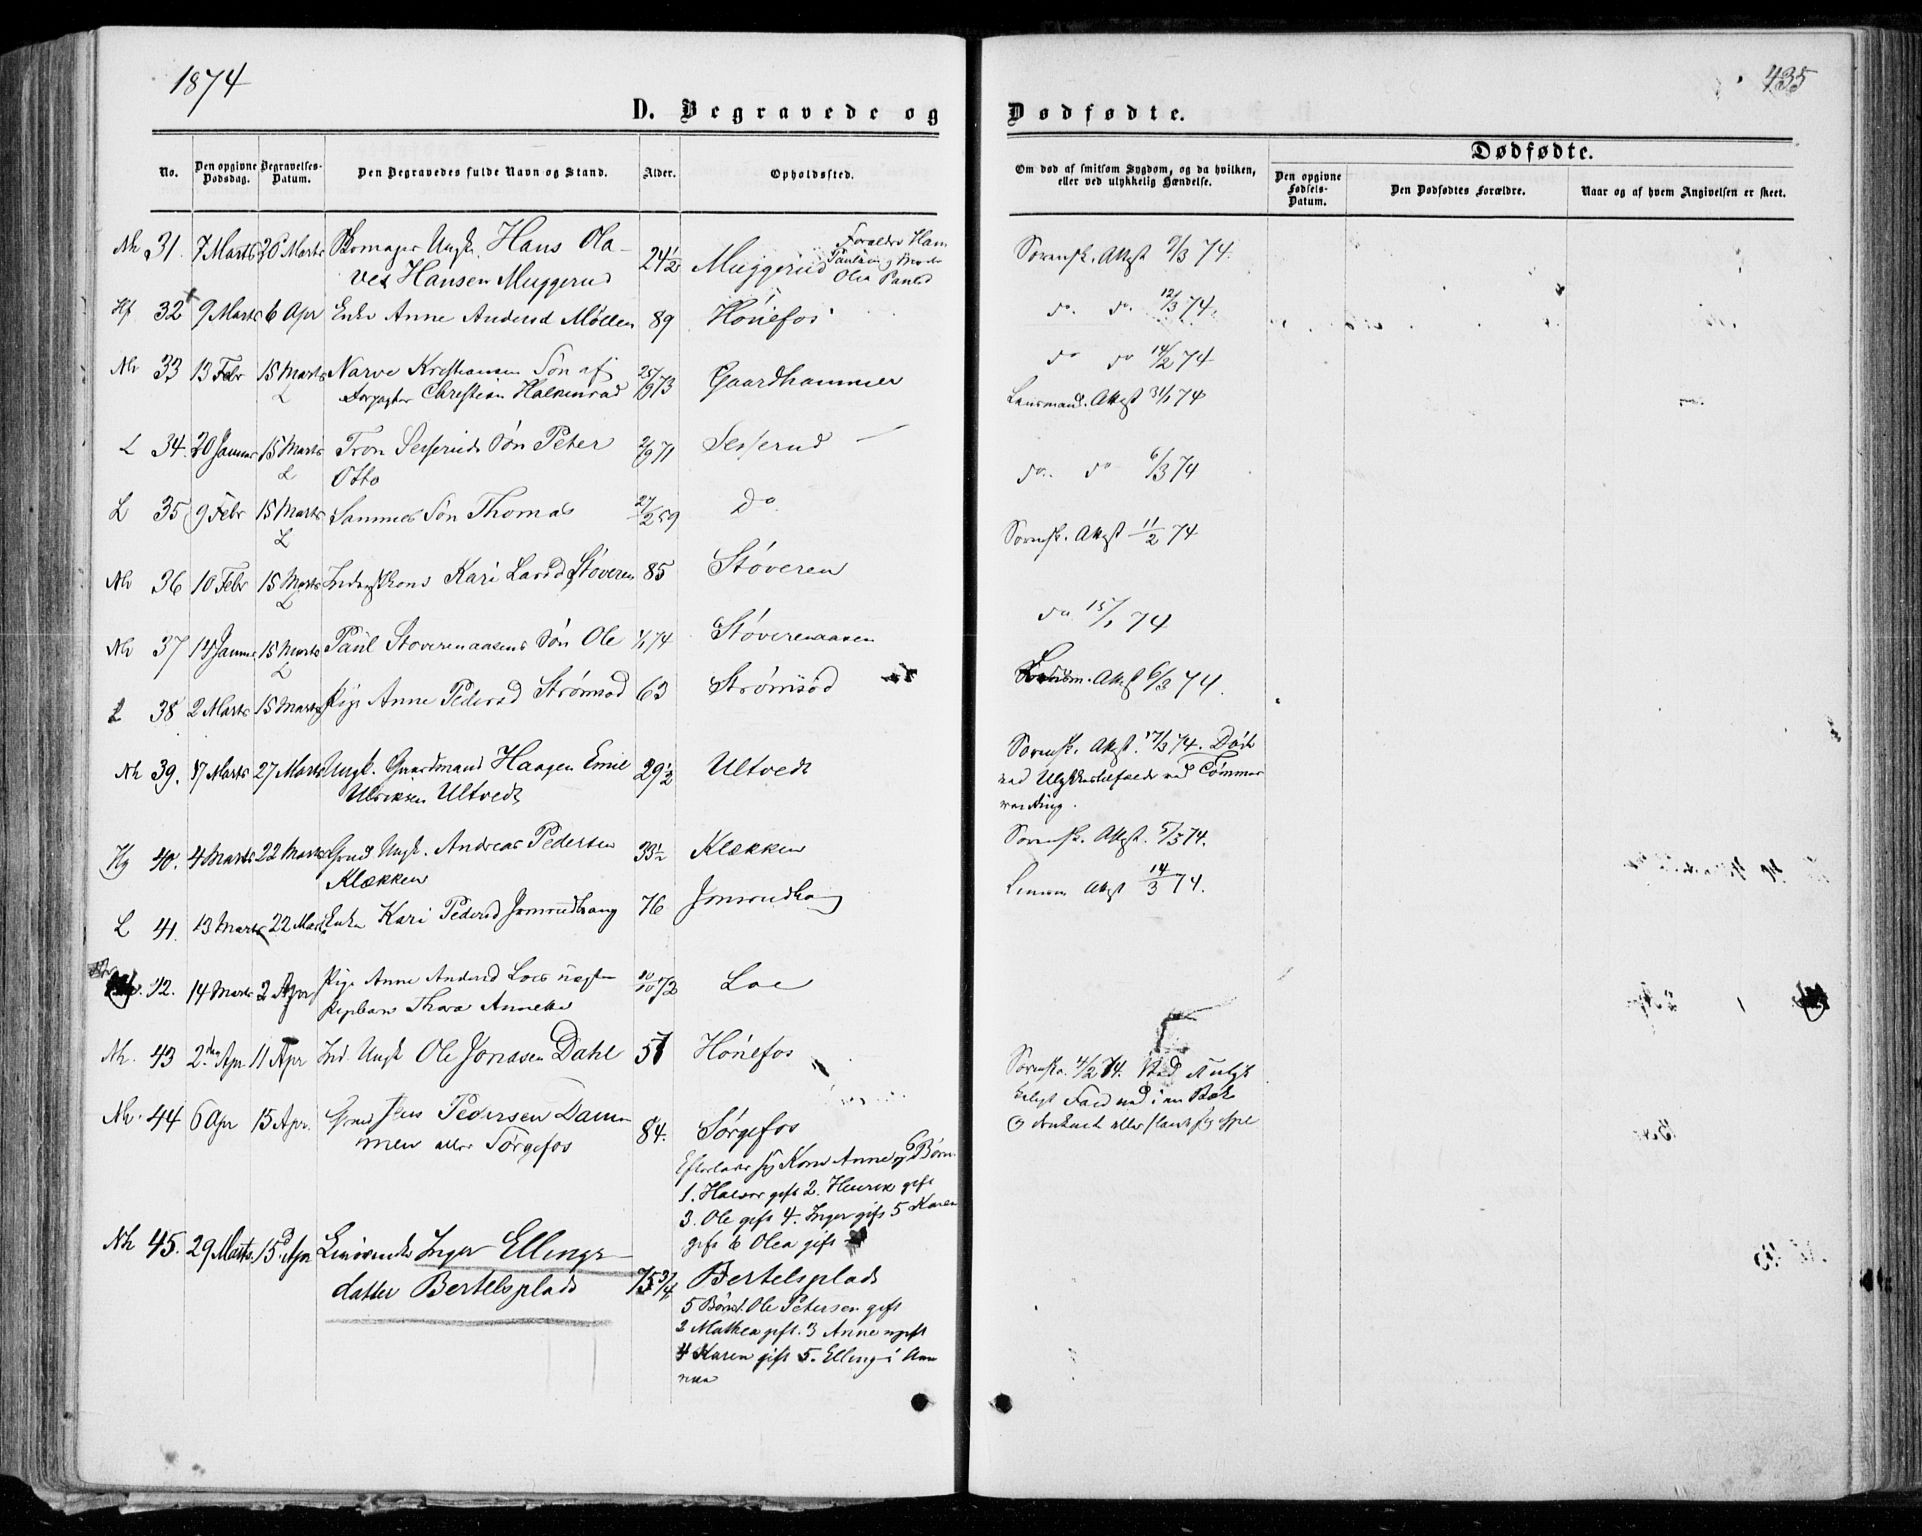 1874
435
D. Begravede og Dødfødte.
No.
Den opgivne Dødsdag.
Begravelses-Datum.
Den Begravedes fulde Navn og Stand.
Alder.
Opholdssted.
Om død af smitsom Sygdom, og da hvilken,
eller ved ulykkelig Hændelse.
Dødfødte.
Den opgivne Fødsels-Datum.
Den Dødfødtes Forældre.
Naar og af hvem Angivelsen er skeet.
Nh 31. 7 Marts 26 Marts Ungk. Hans Ola-
ves Hansen Muggerud 24½ Muggerud
Sorensk. Attest 9/3 74.
Hf 32 9 Marts 6 Apr Enke Anne Andersd Møllen 89 Hønefos
do. do. 12/3 74.
Nh 33 13 Febr 15 Marts Narve Kristiansen Søn af
Forpagter Christian Halkinrud 25/9 73 Gaardhammer
do do 14/2 74
L
Lensmand. Attest 31/1 74
L 34. 20 Januar 15 Marts Tron Sesserud Søn Peter
Otto 2/9 71 Sesserud
L
do. do 6/3 74
L 35 9 Febr 15 Marts Sammes Søn Thomas 27/2 59 Do.
L
Sorensk. Attest 11/2 74
Nh 36 10 Febr 15 Marts Kari Larsd Støveren 85 Støveren
L
do 15/1 74
Nh 37 14 Januar 15 Marts Paul Støverenaasens Søn Ole 1/1 74 Støverenaasen
L
L 38 2 Marts 15 Marts Pige Anne Pedersd Strømsød 63 Strømsød
Attest 6/3 74.
Nh 39. 17 Marts 27 Marts Ungk. Gaardmand Haagen Emil
Ulriksen Ultvedt 29½ Ultvedt
Sorensk. Attest. 17/3 74. Død
ved Ulykkestilfælde ved Tømmer
Hg 40. 4 Marts 22 Marts Grmd Ungk. Andreas Pedersen
Klækken 33½ Klækken
Sorensk. Attest. 5/3 74.
L 41. 13 Marts 22 Marts Enke Kari Pedersd Jonsrudhaug 76 Jonsrudhaug
Attest 14/3 74.
42. 14 Marts 2 Apr Pige Anne Andersd Loes uægte
Pigebarn Thora Annette 10/10 72 Loe
Nh. 43 2den Apr 11 Apr Ind. Ungk Ole Jonasen Dahl 51 Hønefos
Sorensk. 4/2 74. Ved et ulyk
keligt Fald ned i en Bæk
Nh. 44 6 Apr 15 Apr. Jens Pedersen Dam-
men eller Sørgefos 84. Sørgefos
Efterlader sig Kone Anne og 6 Børn
1. Halvor gift 2. Henrik gift
3. Ole gift 4. Inger gift 5 Karen
gift 6 Olea gift
Nh 45. 29 Marts 15 Apr Inger Ellings-
datter Bertelsplads 75¾ Bertelsplads
5 Børn 1. Ole Petersen gift
2 Mathea gift. 3 Anne ugift
4 Karen gift 5. Elling i Ame
rika